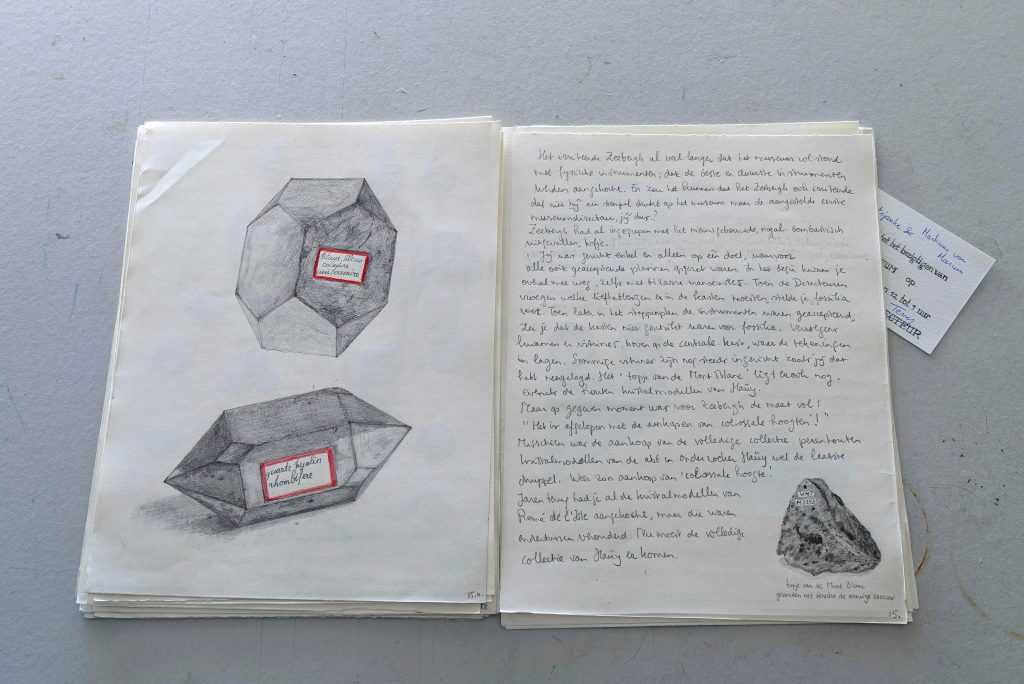 quartz hyalin
rhombifère
15.a
Het irriteerde Zeebergh al veel langer dat het museum vol stond
met fysische instrumenten; dat de beste en duurste instrumenten
werden aangekocht. En zou het kunnen dat het Zeebergh ook irriteerde
dat niet hij een stempel drukt op het museum maar de aangestelde eerste
museumdirecteur, jij dus?
Zeebergh had al ingegrepen met het nieuwgebouwde, nogal bombastisch
uitgevallen, hofje.
Jij was gericht enkel en alleen op één doel, waarvoor
alle ooit geaccepteerde plannen opzij waren. In het begin kwam je
overal mee weg, zelfs met bizarre manoeuvres. Toen de Directeuren
vroegen welke liefhebberijen er in de kasten moesten stelde je fossilia
voor. Toen later in het stappenplan de instrumenten waren geaccepteerd,
zei je dat de kasten niet geschikt waren voor fossilia. Vervolgens
kwamen er vitrines, boven op de centrale kast, waar de tekeningen
in lagen. Sommige vitrines zijn nog steeds ingericht zoals jij dat
hebt neergelegd. Het 'topje van de Mont Blanc' ligt er ook nog,
evenals de houten kristalmodellen van Haüy.
Maar op gegeven moment was voor Zeebergh de maat vol!
"Het is afgelopen met de aankopen van 'colossale hoogten'!"
Misschien was de aankoop van de volledige collectie perenhouten
kristalmodellen van de abt en onderzoeker Haüy wel de laatste
druppel. Weer zo'n aankoop van 'colossale hoogte'.
Jaren terug had je al de kristalmodellen van
Romé de l'Isle aangekocht, maar die waren
ondertussen verouderd. Nu moest de volledige
collectie van Haüy er komen.
topje van de Mont Blanc
gevonden net beneden de eeuwige sneeuw
15.
Martinus van
Marum
tot het bezigtigen van
op
12 tot 1 uur